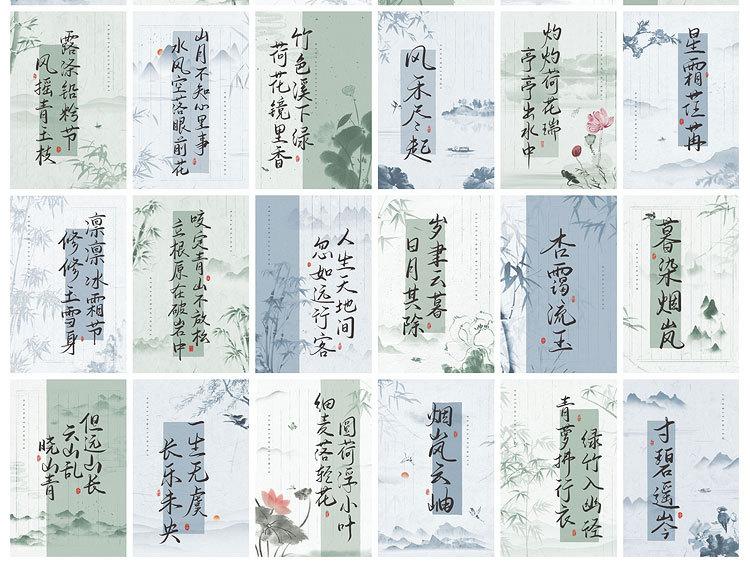 露涤铅粉节
风摇青玉枝
山月不知心里事
水风空落眼前花
竹色溪下绿
荷花镜里香
风禾尽起
灼灼荷花瑞
亭亭出水中
星霜荏苒
凛凛冰霜节
修修玉雪身
咬定青山不放松
立根原在破岩中
人生天地间
忽如远行客
岁聿云暮
日月其除
杳霭流玉
暮染烟岚
但远山长
云山乱
晓山青
一生无虞
长乐未央
圆荷浮小叶
细麦落轻花
烟岚云岫
绿竹入幽径
青萝拂行衣
寸碧遥岑